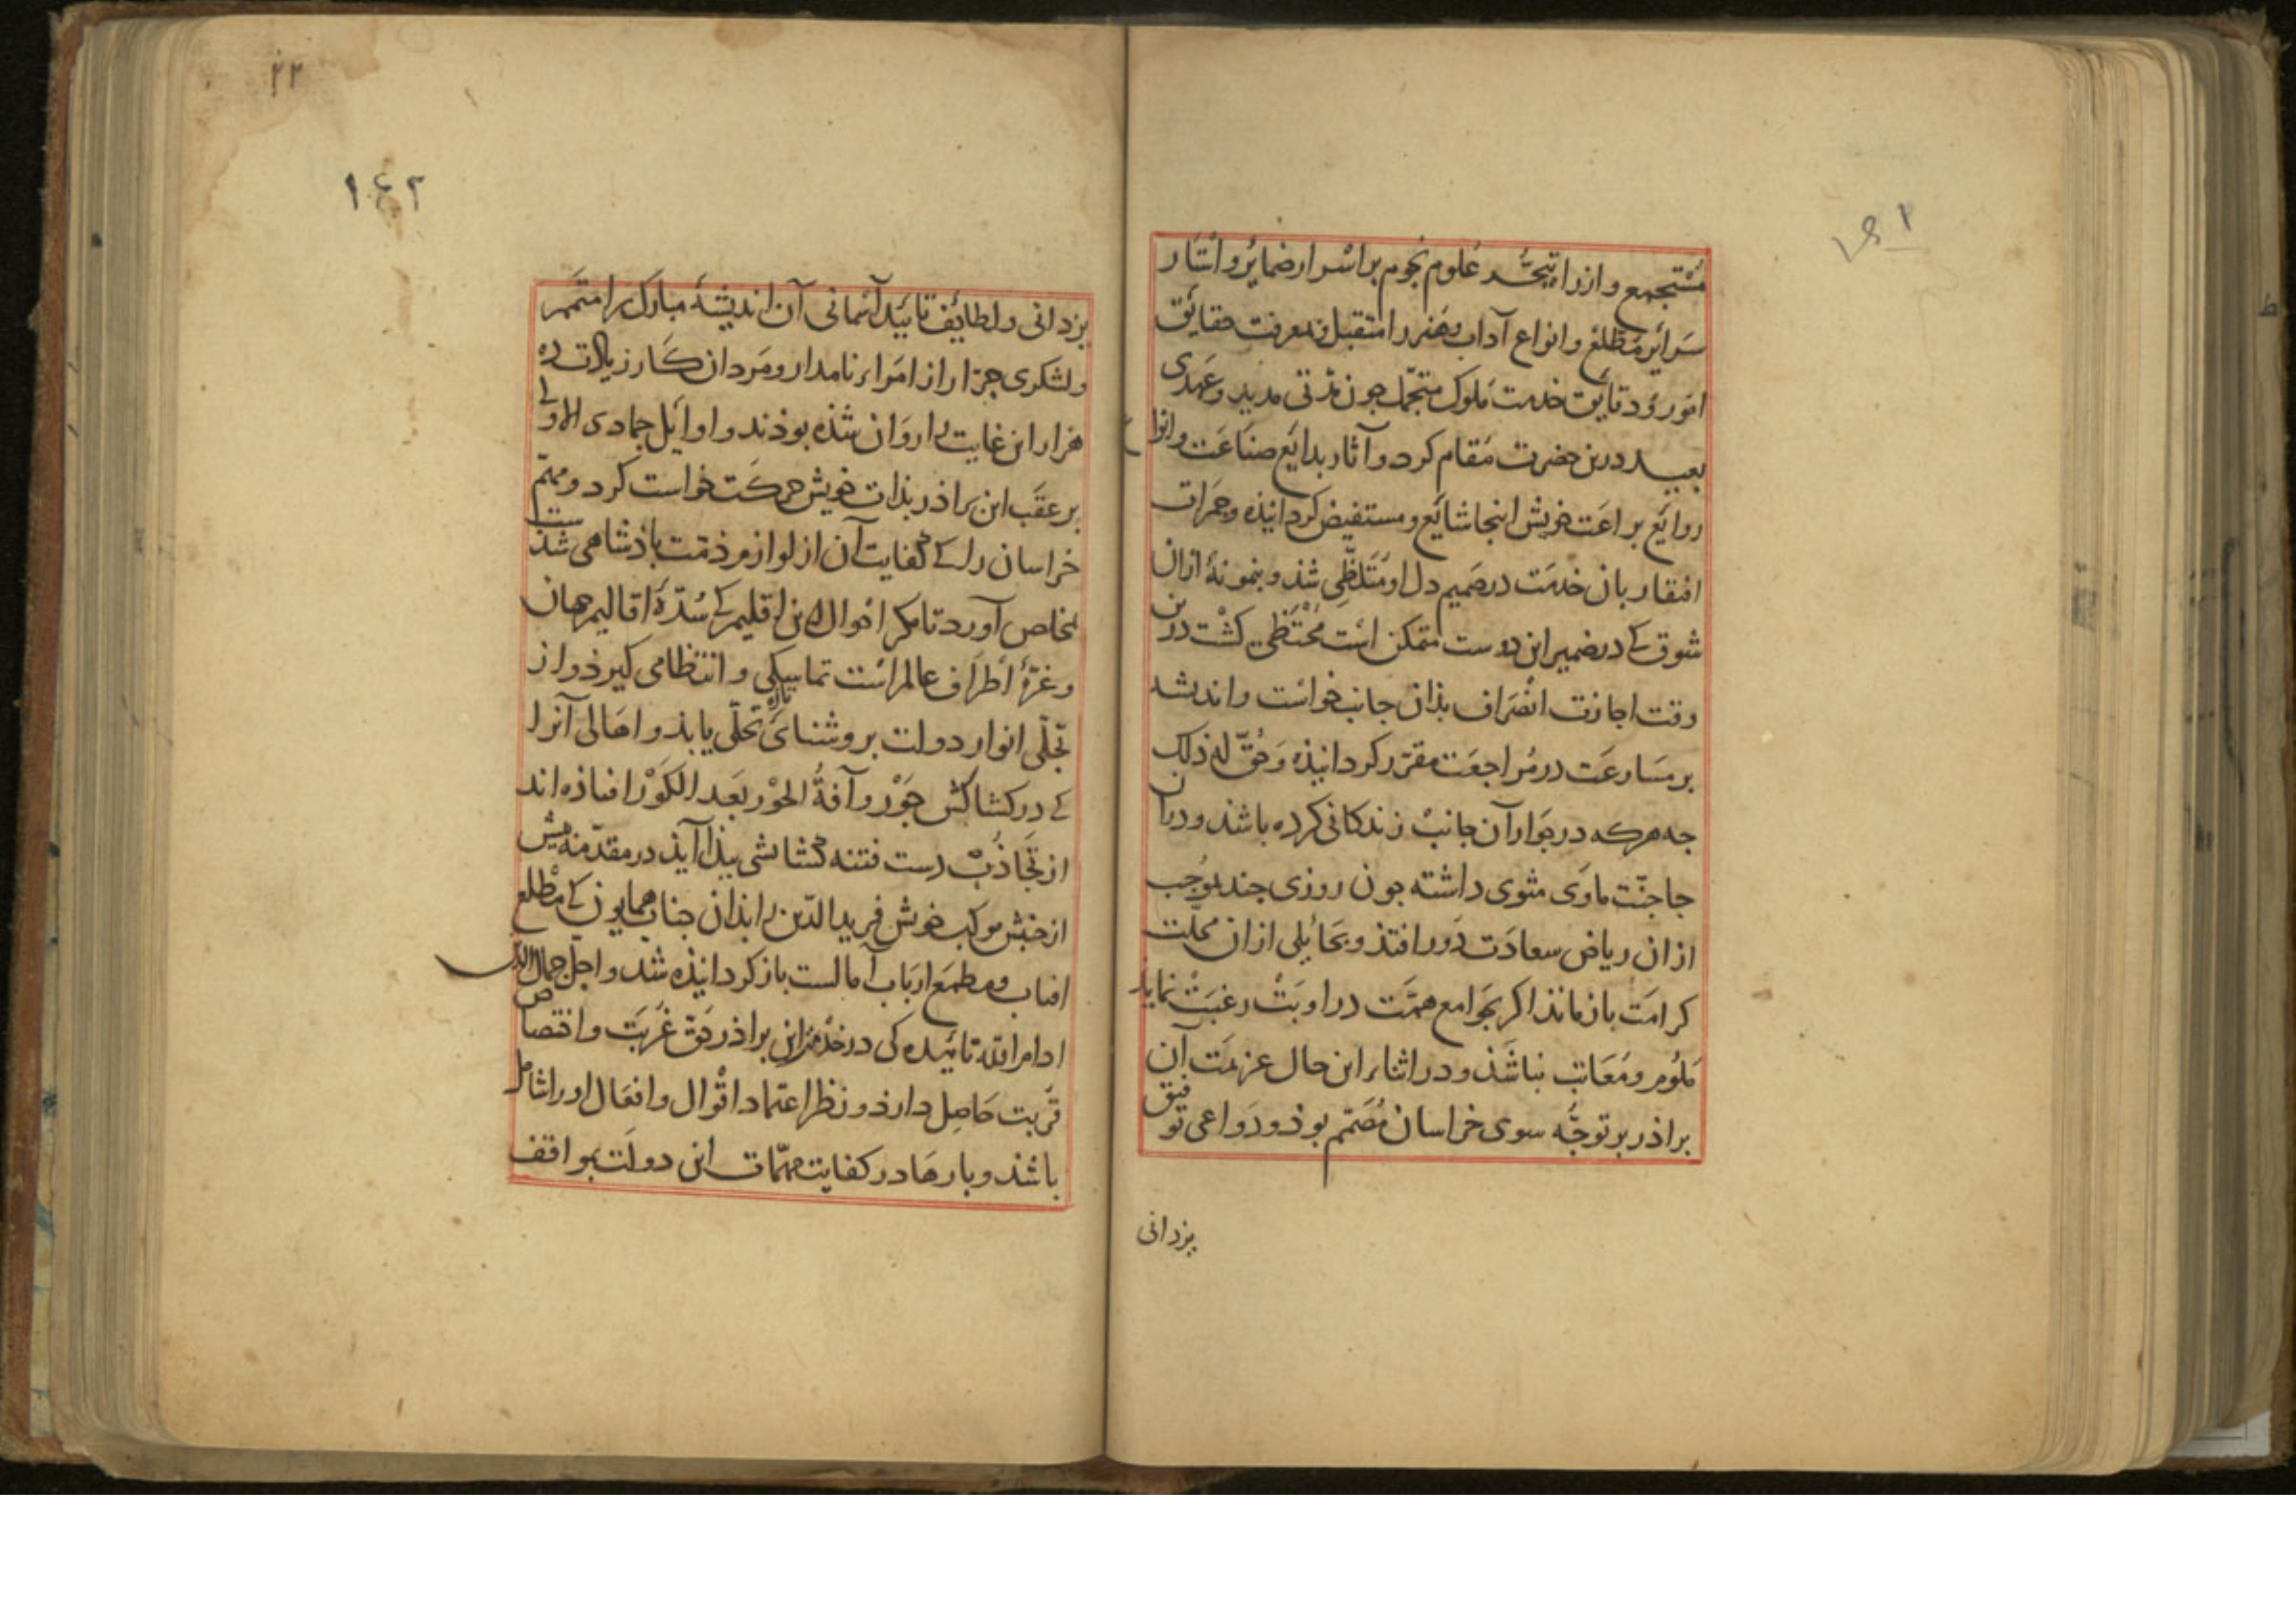 مُسْتجمِع و ازراه تبحّر علوم نجوم بر اسرار ضمایر و استار
سَرایر مُطّلع و انواع آداب و هنر را متقبل و بمعرفت حقایق
امور و دقایق خدمت ملوک متجمّل جون مُدّتی مدید و عَهدی
بعید درین حضرت مُقام کرد و آثار بدایع صناعَت و انواع
روایع براعَت خویش اینجا شایع و مستفیض کردانیذه و جمَرات
افتقار بذان خدمَت درصَمیم دل او مُتَلظّی شذ و بنمونهٔ ازان
شوق کی در ضمیر این دوست متمکن است مُحْتَظی کشت درین
وقت اجازت انصَراف بذان جانب خواست و اندیشه
بر مسَارعَت در مُراجعَت مقرّر کردانیذه وَ حُقَّ لهُ ذلک
جه هرکه در جوار آن جانبْ زندکانی کرده باشذ و دران
جا جنّت ماوَی مثوی داشته جون روزی جند بموُجب
ازان ریاض سعادَت دُور افتذ و بحایلی ازان محلّت
کرامَت باز ماند اکر بجَوامع همّت در اوبَتْ رغبَتْ نماید
مَلوُم و مُعَاتب نباشَذ و در اثناء این حال عزیمَت آن
براذر بر توجُّه سوی خراسان مُصَمّم بوذ و دَواعی توفیق
یزدانی
١٤٢
یزدانی و لطایف تایید آسمانی آن اندیشهٔ مبارک را متمّر
و لشکری جرّار از امَراء نامدار و مَردان کارزیادت ده
هزار این غایت را روَان شذه بوذند و اوایَل جمادی الاولی
بر عقَب این براذر بذات خویش حرکَت خواست کرد و مهمّ
خراسان را کی کفایت آن از لوازم ذمّت باذشاهی شذست
بخاص آورد تا مکر احْوال این اقلیم کی سُرّهٔ اقالیم جهان
و غرّهٔ اطراف عالم است تماسکی و انتظامی کیرذ و از
تجلّی انوار دولت بروشنای تازه تحلّی یابذ و اهَالی آنرا
کی در کشاکش جَوْر و آفةُ الحَوْر بَعد الکَوْر افتاذه اند
از تجَاذُبْ دست فتنه کشایشی بیذا آید در مقدّمه بیش
از جنبش موکب خویش فرید الدّین را بذان جناب همایون کی مَطْلع
افتاب و مطمَع ارباب آمالست باز کردانیذه شد و اجلّ جمال الدّین
ادام الله تاییده کی در خدمت این براذر حَق غُربَت و اختصاص
قُربت حَاصِل دارذ و نظر اعتماد اقْوال و افعَال او را شامل
باشذ و بارهَا در کفایت مهمّات این دولت بمواقف